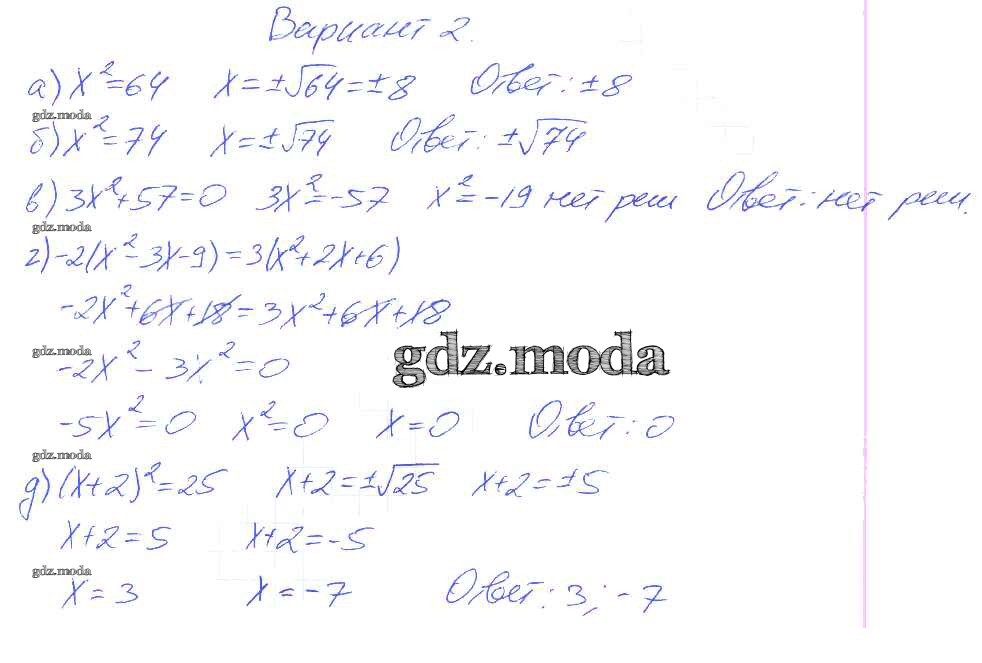 Вариант 2.
а) x²=64 x=±√64=±8 Ответ: ±8
gdz.moda
б) x²=74 x=±√74 Ответ: ±√74
в) 3x²+57=0 3x²=-57 x²=-19 нет реш Ответ: нет реш.
gdz.moda
г) -2(x²-3x-9)=3(x²+2x+6)
-2x²+6x+18=3x²+6x+18
gdz.moda
-2x²-3x²=0
gdz.moda
-5x²=0 x²=0 x=0 Ответ: 0
gdz.moda
д) (x+2)²=25 x+2=±√25 x+2=±5
x+2=5 x+2=-5
gdz.moda
x=3 x=-7 Ответ: 3; -7